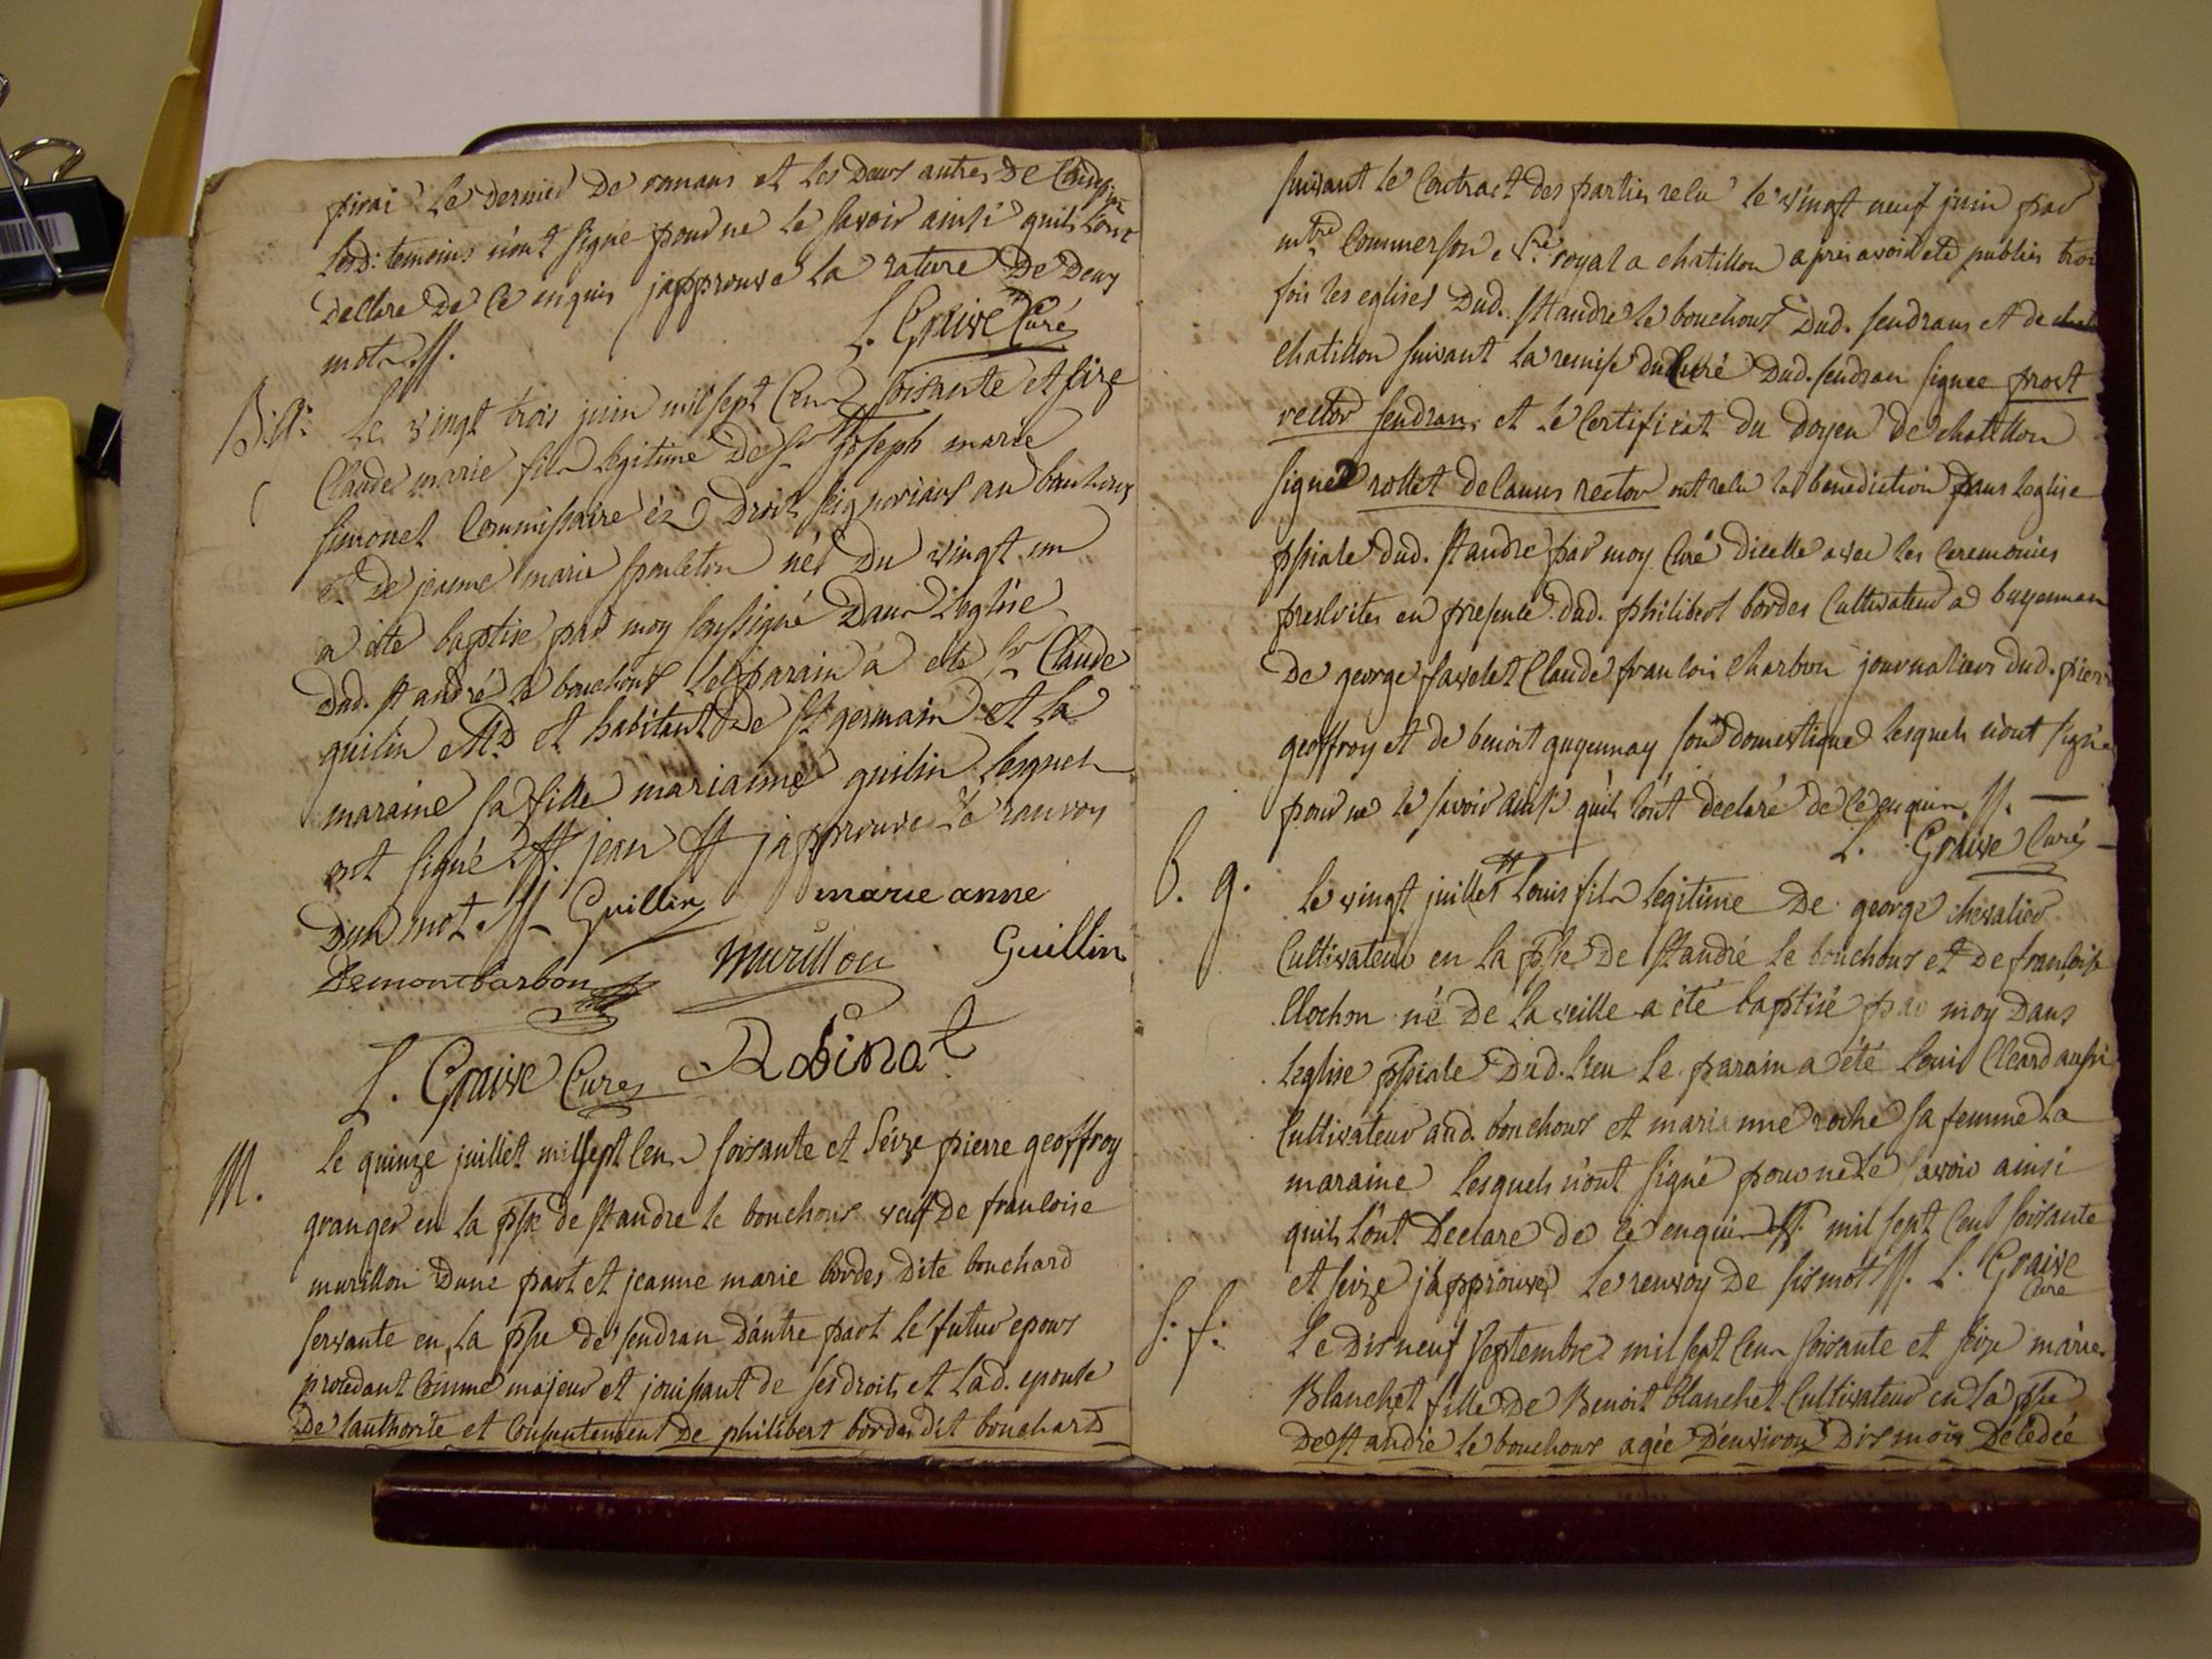 pirai le dernier de romans et les deux autres de
lesd. temoins n'ont signé pour ne le savoir ainsi quils l'ont
declare de ce enquis japprouve la rature de deux
mots //.
L. Graive Curé
Le vingt trois juin mil sept Cent soisante et size
Claude marie fils legitime de sr joseph marie
simonet Commissaire éz Droit seignoriaux au bouchoux
et de jeanne marie né du vingt un
a ete baptise par moy soussigné Dans l'eglise
dud. st andré le bouchoux le parain a ete sr Claude
guilin Md et habitant de st germain et la
maraine sa fille marianne guilin lesquels
ont signé //. jean // japprouve le ranvoy
Dun mot //. Guillin marie anne
Guillin
Demontbarbon murillon
L. Graive Curé Robinat
M. le quinze juillet mil sept Cens soisante et séize pierre geoffroy
granger en la psse de st andre le bouchoux veuf de francoise
murillon Dune part et jeanne marie bordes dite bouchard
servante en la psse de sendran d'autre part le futur epoux
procedant comme majeur et jouissant de ses droits et lad. epouse
De lauthorite et Consentement De philibert bordes dit bouchard
suivant le Contract des parties relu le vingt neuf juin par
mtre Commerson royal a chatillon apres avoir ete publies trois
fois les eglises Dud. st andre le bouchoux Dud. sendrans et de
chatillon suivant la remise du Curé Dud. sendran signee prost
rector sendran, et le Certificat du doyen de chatillon
signé rollet delanus rector ont relu la benediction dans leglise
pssiale dud. st andre par moy Curé dicelle avec les ceremonies
prescrites en presence dud. philibert bordes Cultivateur a buyennan
de george favelet Claude francois charbon journaliers dud. pierre
geoffroy et de benoit guyennay son domestique lesquels n'ont signé
pour ne le savoir ainsi quils l'ont declaré de ce enquis //. —
L. Graive Curé
b. g. le vingt juillet // Louis fils legitime De george chevalier
Cultivateur en la psse De st andré le bouchoux et de francoise
Clochon né De la veille a été baptisé par moy Dans
leglise pssiale Dud. lieu le parain a été Louis Cleard aussi
Cultivateur aud. bouchoux et marianne roche sa femme la
maraine lesquels n'ont signé pour ne le savoir ainsi
quils l'ont Declare de ce enquis // mil sept Cent soisante
et seize j'approuve le renvoy De sis mots //. L. Graive
Cure
s. f. Le dis neuf septembre mil sept Cens soisante et seize marie
Blanchet fille De Benoit blanchet Cultivateur en la psse
De st andré le bouchoux agée D'environ Dis mois Décédée